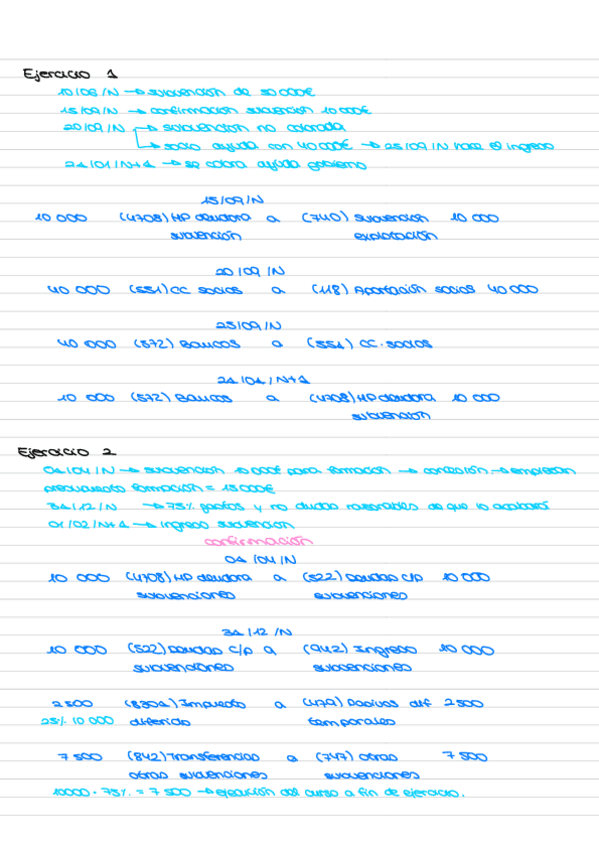 Ejercicio 1
10/08/N → subvención de 50 000€
15/09/N → confirmación subvención 10 000€
20/09/N → subvención no cobrada
↳ socio ayuda con 40 000€ → 25/09/N hace el ingreso
21/01/N+1 → se cobra ayuda gobierno
15/09/N
10 000 (4708) HP deudora a (740) subvención 10 000
subvención explotación
20/09/N
40 000 (551) CC socios a (118) Aportación socios 40 000
25/09/N
40 000 (572) Bancos a (551) CC. socios
21/01/N+1
10 000 (572) Bancos a (4708) HP deudora 10 000
subvención
Ejercicio 2
01/04/N → subvención 10 000€ para formación → concesión → empiezan
presupuesto formación = 15 000€
31/12/N → 75% gastos y no dudas razonables de que lo acabará
01/02/N+1 → ingreso subvención
confirmación
01/04/N
10 000 (4708) HP deudora a (522) Deudas c/p 10 000
subvenciones subvenciones
31/12/N
10 000 (522) Deudas c/p a (942) Ingreso 10 000
subvenciones subvenciones
2 500 (8301) Impuesto a (479) Pasivos dif 2 500
25% 10 000 diferido temporales
7 500 (842) Transferencias a (747) otras 7 500
otras subvenciones subvenciones
10000 · 75% = 7 500 → ejecución del curso a fin de ejercicio.